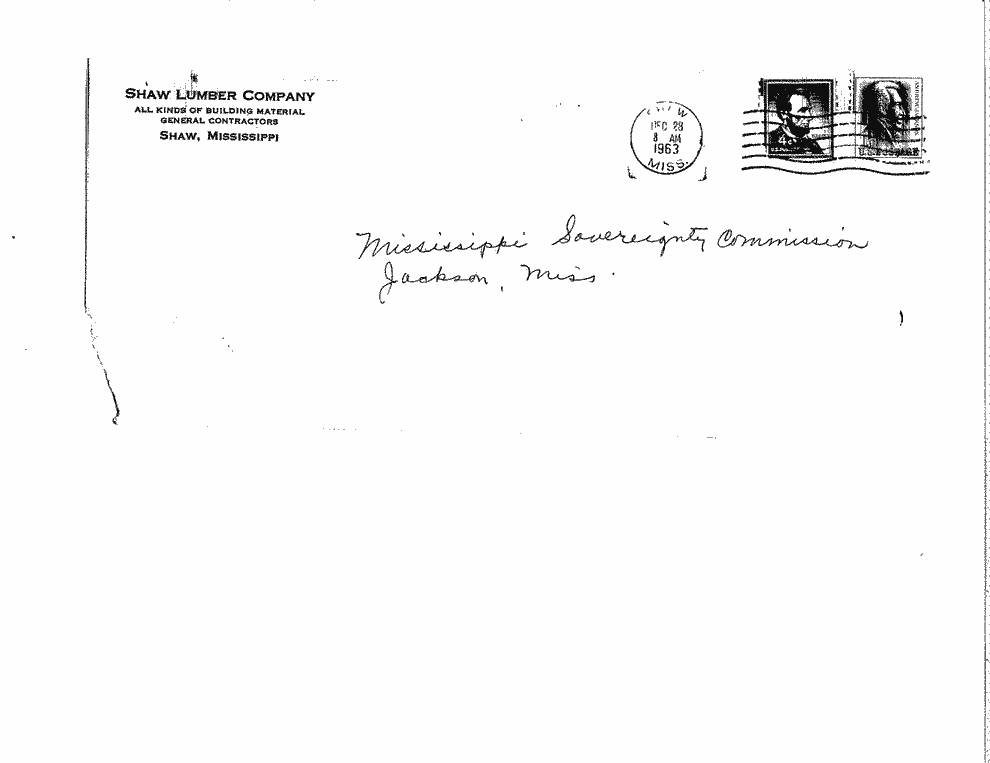 SHAW LUMBER COMPANY
ALL KINDS OF BUILDING MATERIAL
GENERAL CONTRACTORS
SHAW, MISSISSIPPI
DEC 28
8 AM
1963
MISS.
4¢
U.S. POSTAGE
Mississippi Sovereignty Commission
Jackson, Miss.